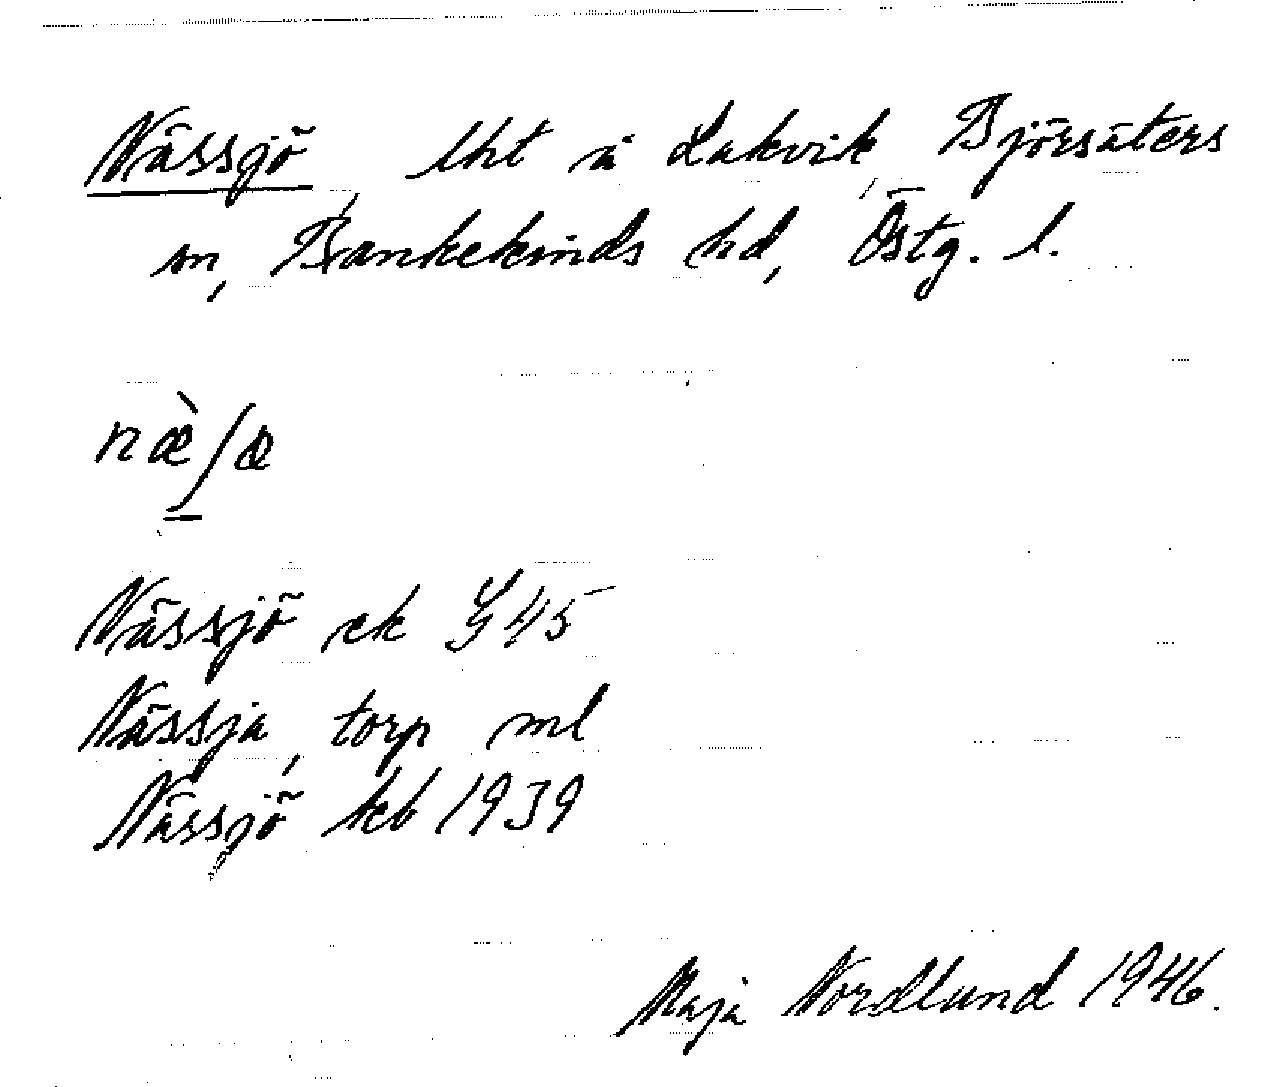 Nässjö, lht å Lakvik, Björsäters
sn, Bankekinds hd, Östg. l.
næ̀ʃæ
Nässjö ek G45
Nässja, torp ml
Nässjö kb 1939
Maja Nordlund 1946.